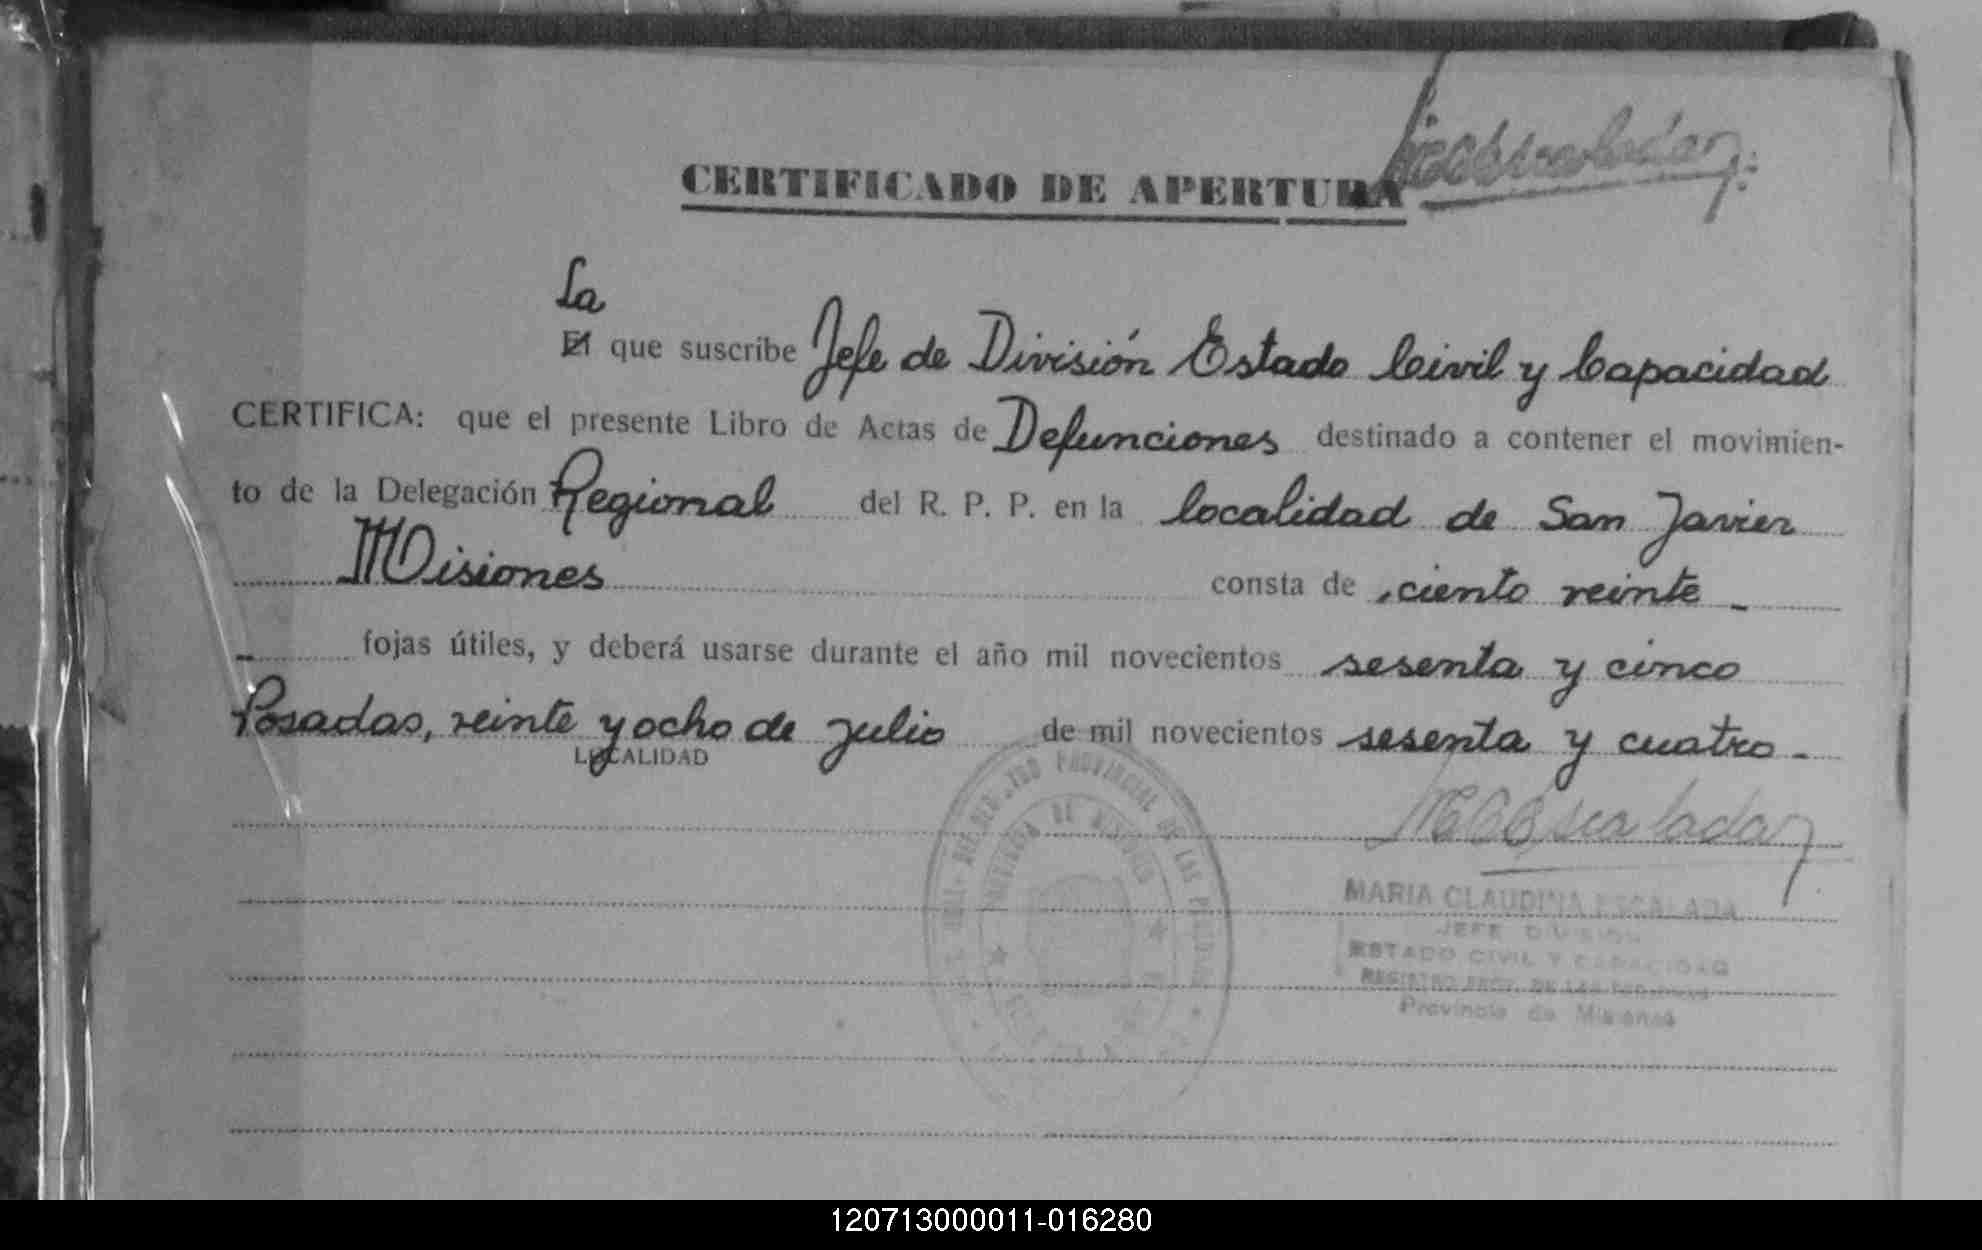 CERTIFICADO DE APERTURA
La
El que suscribe Jefe de División Estado Civil y Capacidad
CERTIFICA: que el presente Libro de Actas de Defunciones destinado a contener el movimien-
to de la Delegación Regional del R. P. P. en la localidad de San Javier
Misiones consta de ciento veinte
fojas útiles, y deberá usarse durante el año mil novecientos sesenta y cinco
Posadas, veinte y ocho de julio de mil novecientos sesenta y cuatro
LOCALIDAD
PROVINCIAL DE LAS
PROVINCIA DE MISIONES
MARIA CLAUDINA ESCALADA
JEFE DIVISION
ESTADO CIVIL Y CAPACIDAD
Provincia de Misiones
120713000011-016280